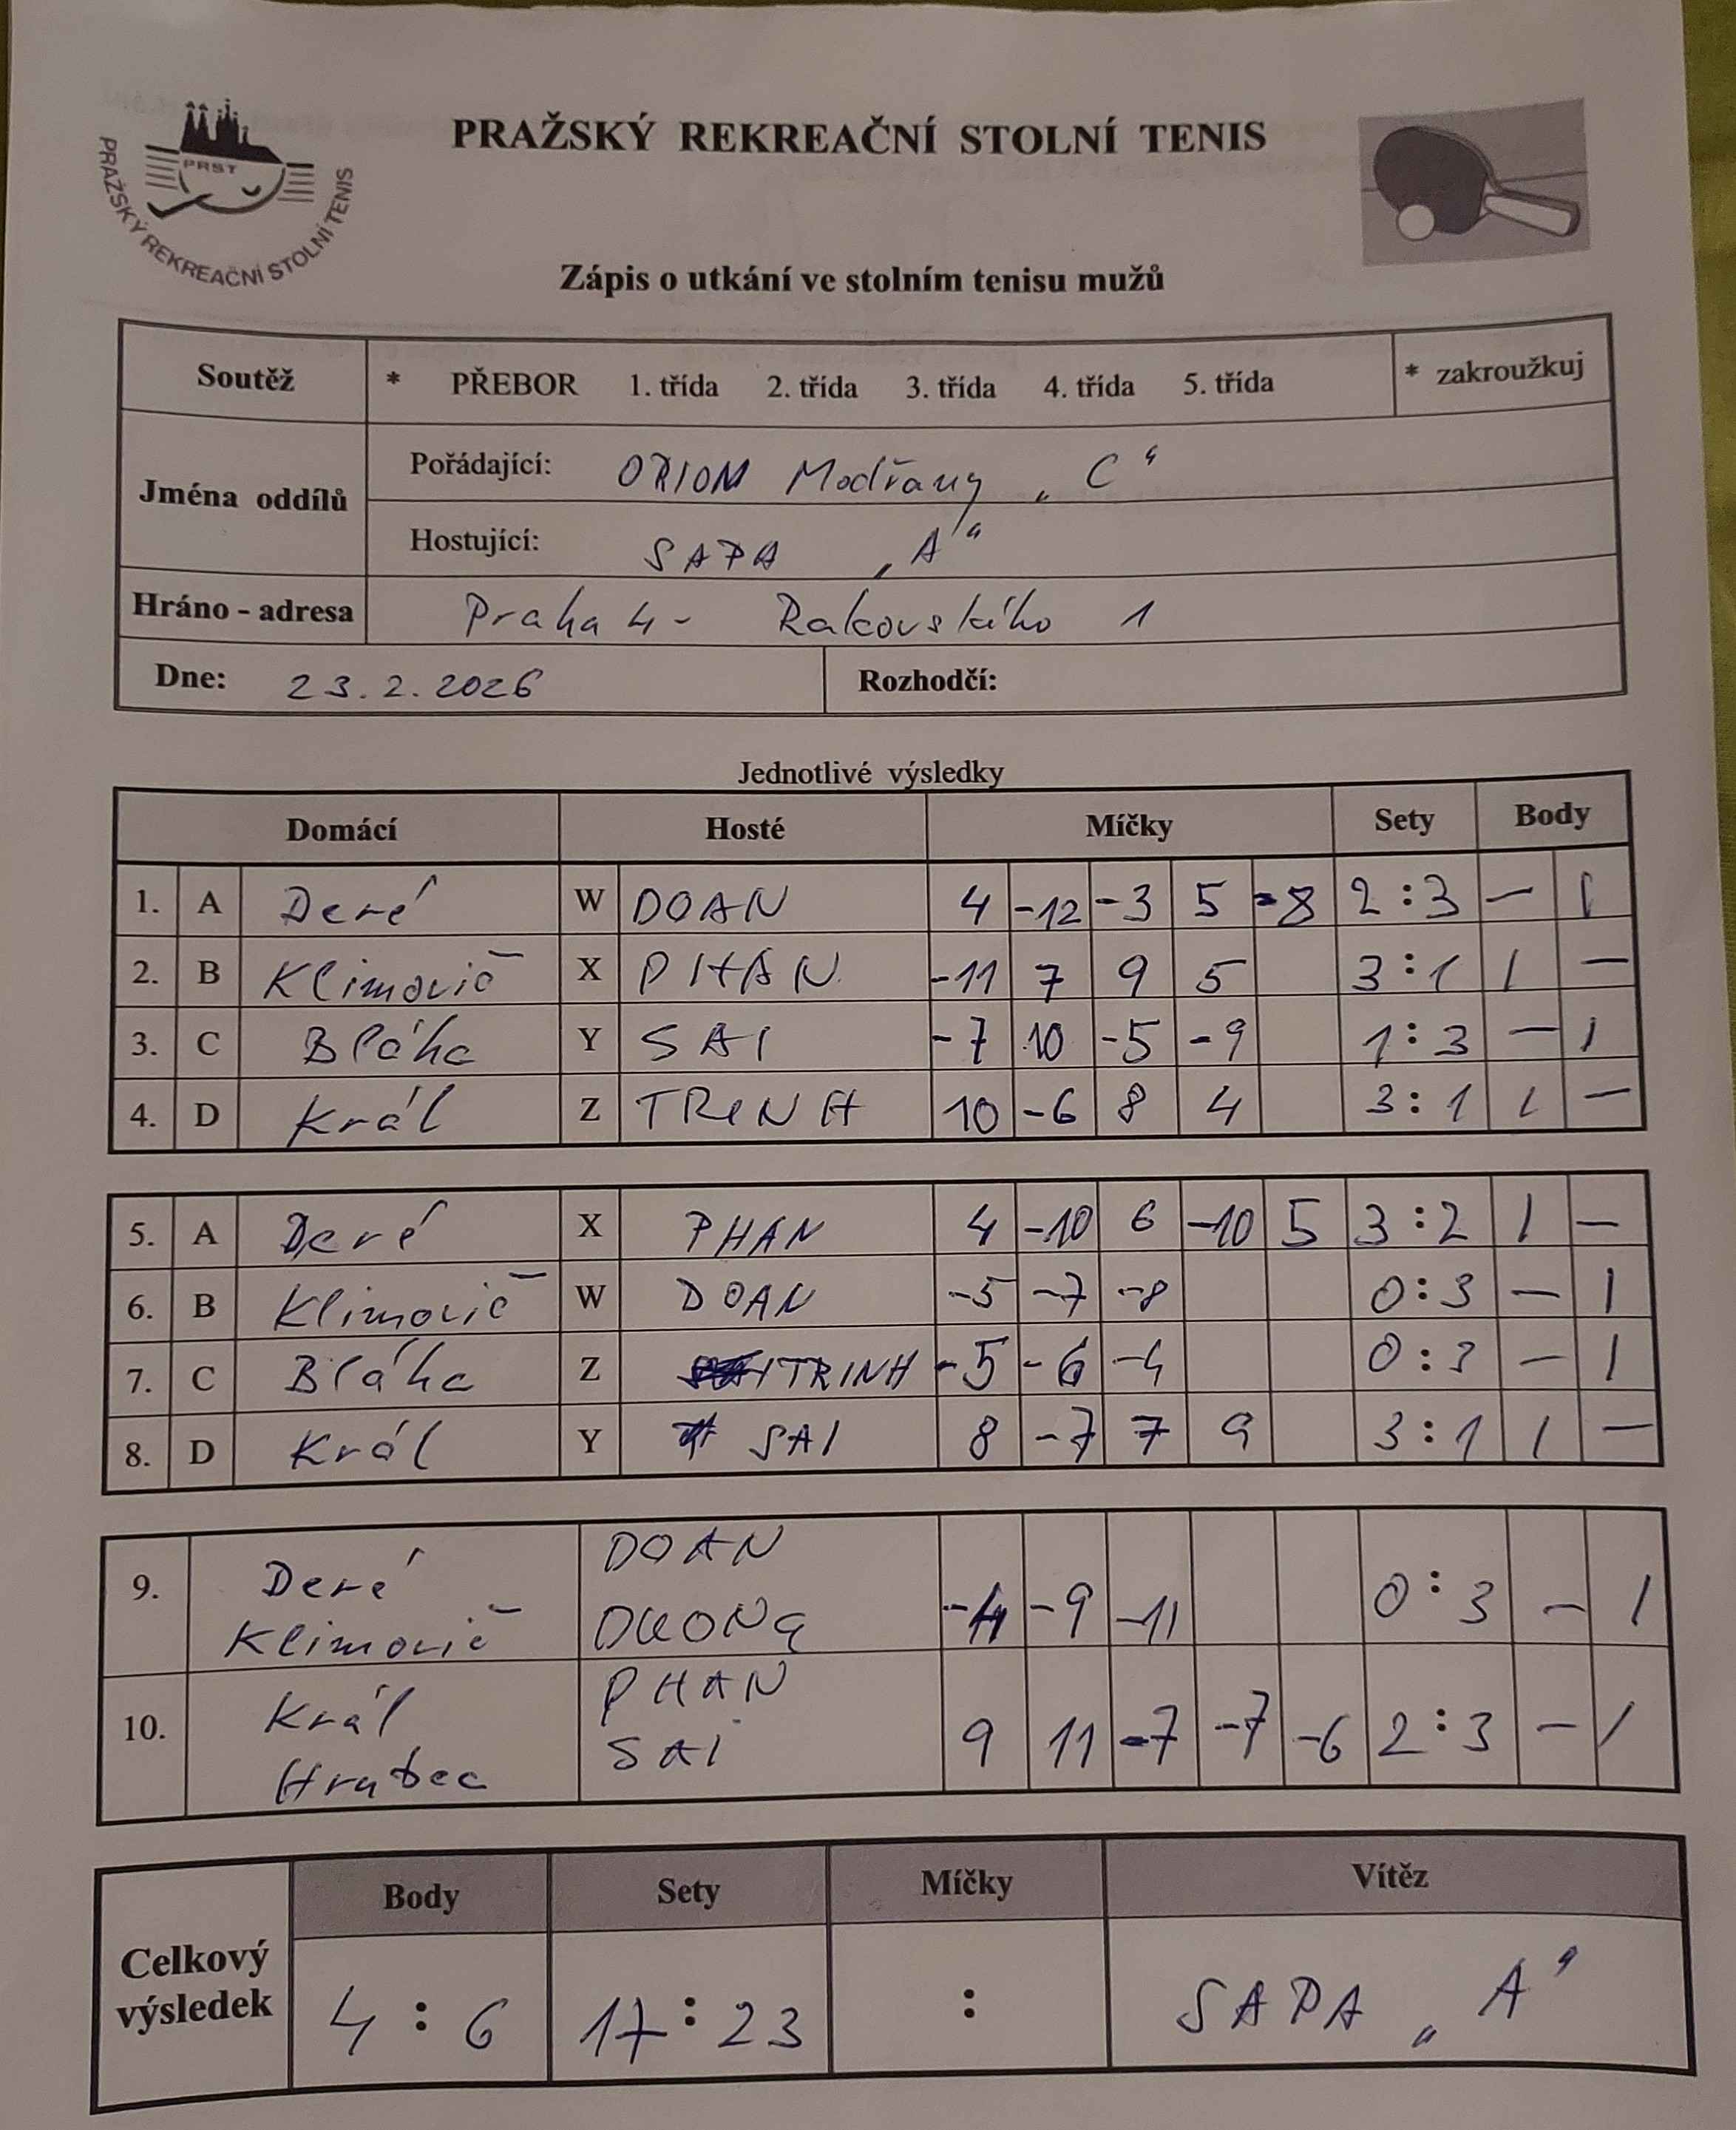 PRST
PRAŽSKÝ REKREAČNÍ STOLNÍ TENIS
PRAŽSKÝ REKREAČNÍ STOLNÍ TENIS
Zápis o utkání ve stolním tenisu mužů
Soutěž * PŘEBOR 1. třída 2. třída 3. třída 4. třída 5. třída * zakroužkuj
Jména oddílů
Pořádající: ORION Modřany „C“
Hostující: SAPA „A“
Hráno - adresa Praha 4 - Rakovského 1
Dne: 23.2.2026 Rozhodčí:
Jednotlivé výsledky
Domácí Hosté Míčky Sety Body
1. A Deré W DOAN 4 -12 -3 5 -8 2:3 — 1
2. B Klimovič X PHAN -11 7 9 5 3:1 1 —
3. C Bláha Y SAI -7 10 -5 -9 1:3 — 1
4. D Král Z TRINH 10 -6 8 4 3:1 1 —
5. A Deré X PHAN 4 -10 6 -10 5 3:2 1 —
6. B Klimovič W DOAN -5 -7 -8 0:3 — 1
7. C Bláha Z TRINH -5 -6 -4 0:3 — 1
8. D Král Y SAI 8 -7 7 9 3:1 1 —
9. Deré DOAN
Klimovič DUONG -4 -9 -11 0:3 — 1
10. Král PHAN
Hrubec SAI 9 11 -7 -7 -6 2:3 — 1
Celkový výsledek
Body Sety Míčky Vítěz
4:6 17:23 : SAPA „A“